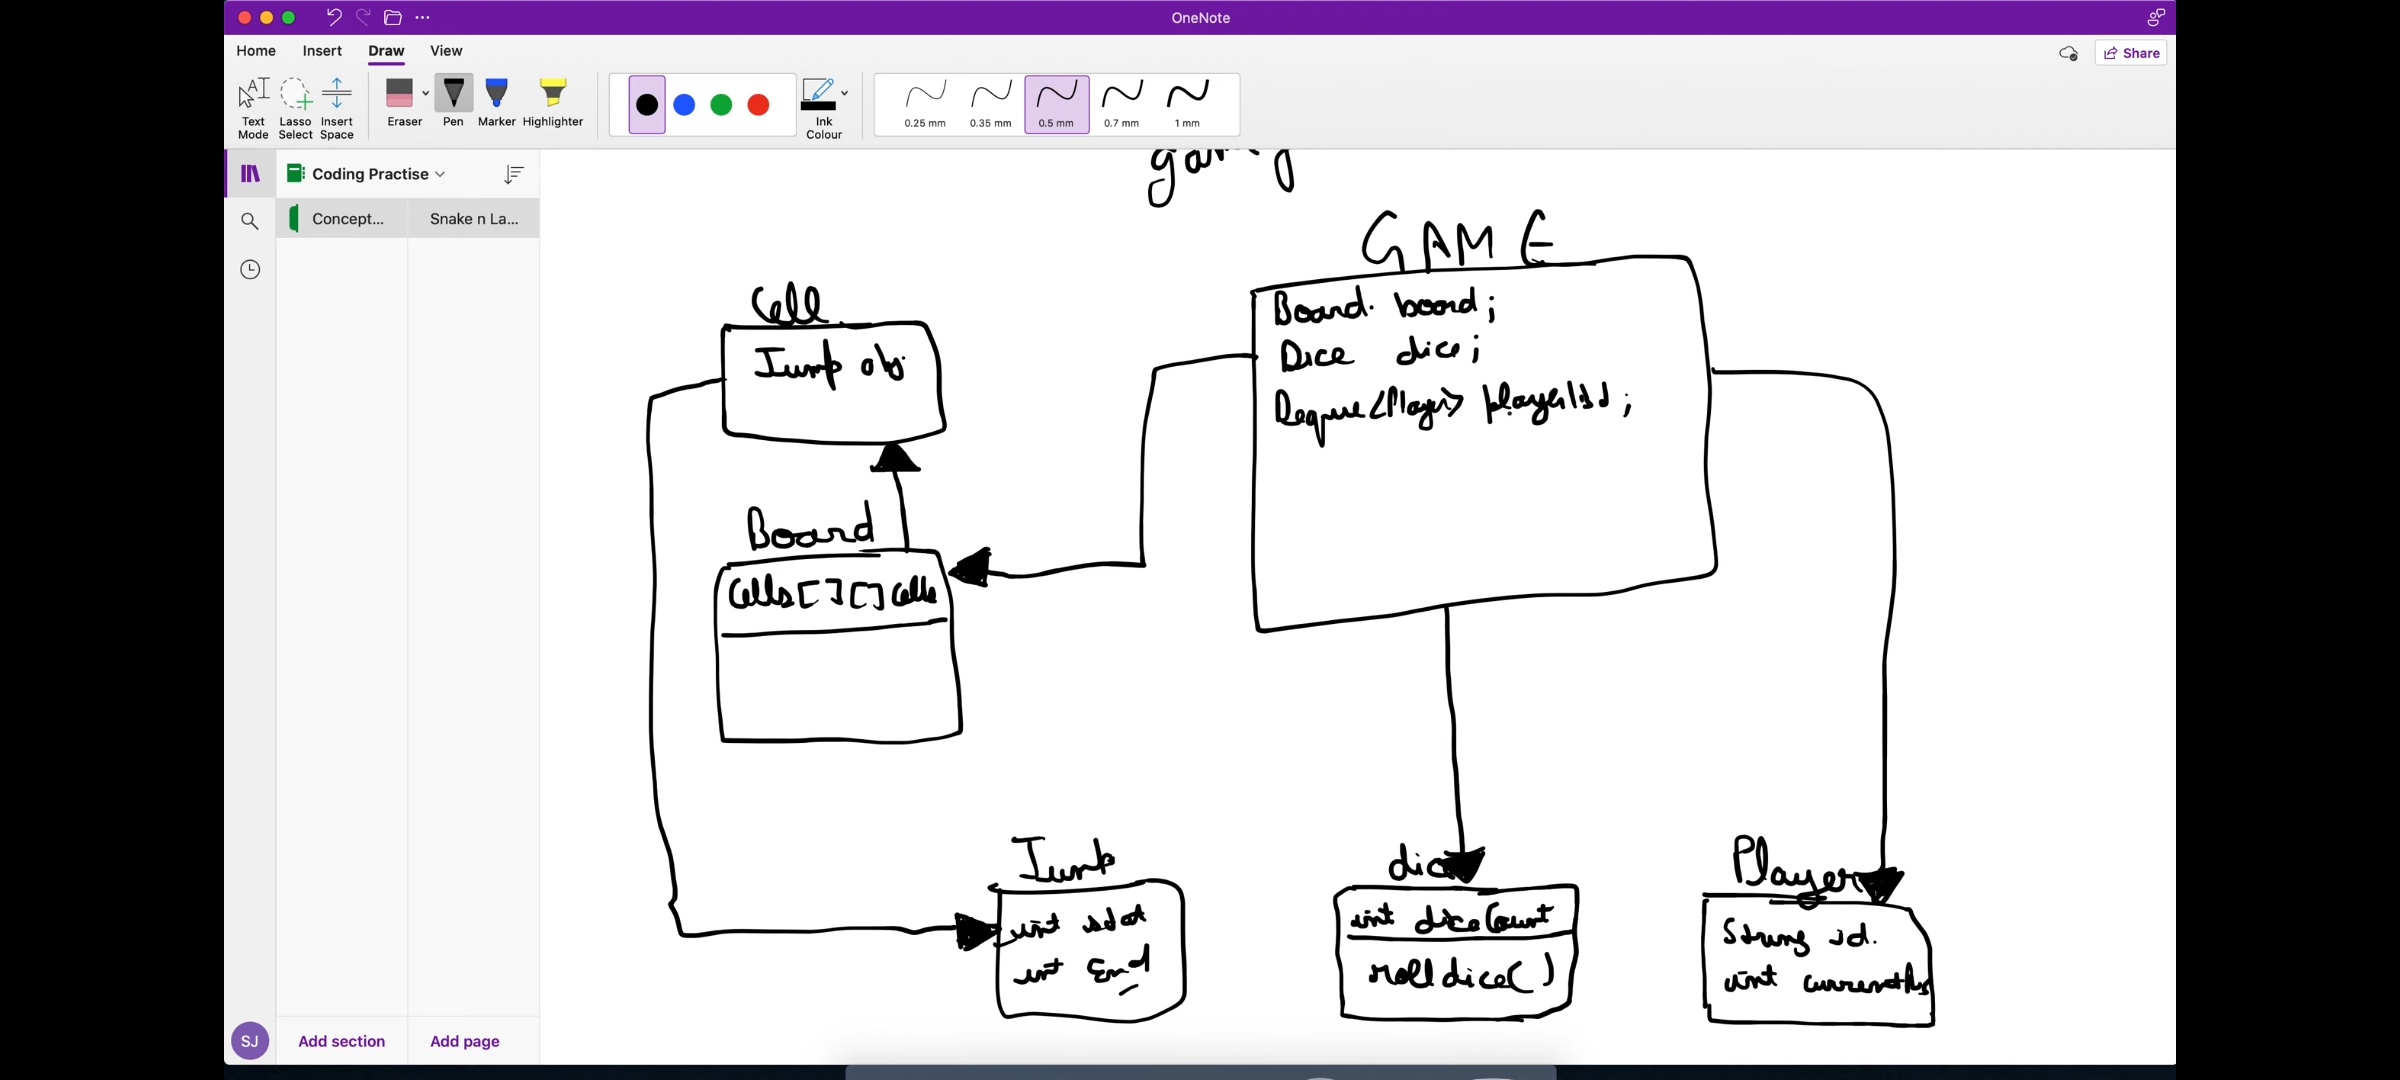 OneNote
Home Insert Draw View
Share
Text Mode
Lasso Select
Insert Space
Eraser
Pen
Marker
Highlighter
Ink Colour
0.25 mm
0.35 mm
0.5 mm
0.7 mm
1 mm
Coding Practise
Concept...
Snake n La...
GAME
Board board;
Dice dice;
Deque<Player> playerlist;
Cell
Jump obj
Board
Cells[][] cells
Jump
int start
int End
dice
int diceCount
rolldice()
Player
String id.
int currentPos
SJ
Add section
Add page